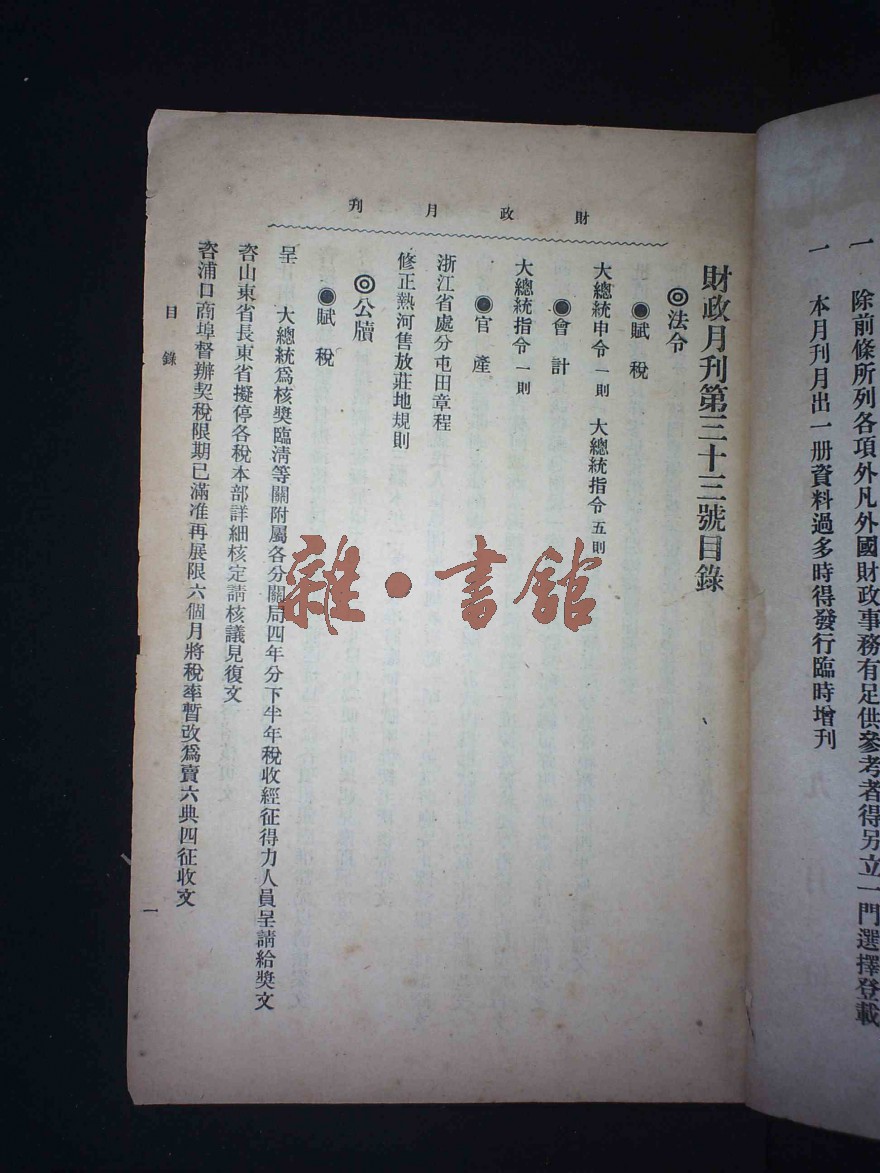 一　除前條所列各項外凡外國財政事務有足供參考者得另立一門選擇登載
一　本月刊月出一册資料過多時得發行臨時增刊
財政月刊
財政月刊第三十三號目錄
◎法令
●賦稅
大總統申令一則　大總統指令五則
●會計
大總統指令一則
●官產
浙江省處分屯田章程
修正熱河售放莊地規則
◎公牘
●賦稅
呈　大總統爲核獎臨淸等關附屬各分關局四年分下半年稅收經征得力人員呈請給獎文
咨山東省長東省擬停各稅本部詳細核定請核議見復文
咨浦口商埠督辦契稅限期已滿准再展限六個月將稅率暫改爲賣六典四征收文
目錄
一
雜·書館